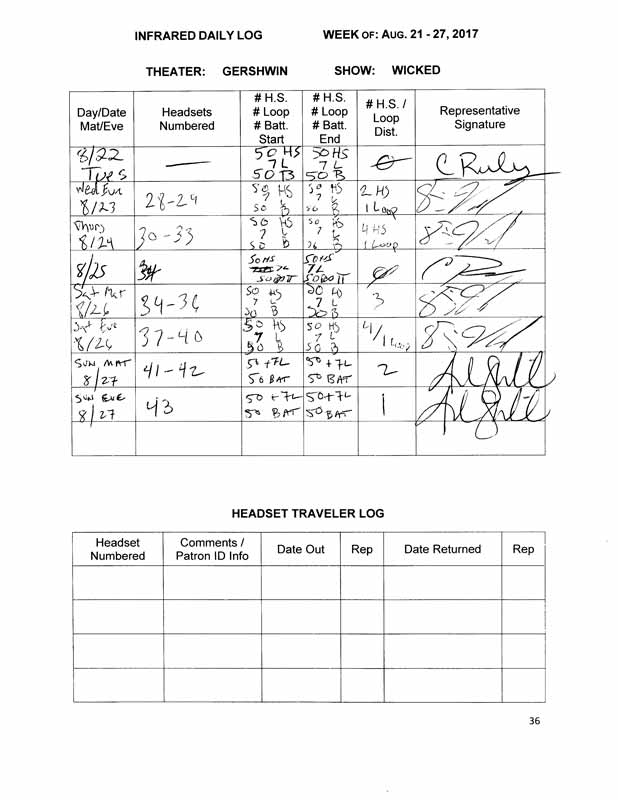 INFRARED DAILY LOG WEEK OF: AUG. 21 - 27, 2017
THEATER: GERSHWIN SHOW: WICKED
Day/Date Mat/Eve
Headsets Numbered
# H.S. # Loop # Batt. Start
# H.S. # Loop # Batt. End
# H.S. / Loop Dist.
Representative Signature
8/22 Tues — 50 HS 7 L 50 B 50 HS 7 L 50 B 0 C Ruly
Wed Eve 8/23 28-29 50 HS 7 L 50 B 50 HS 7 L 50 B 2 HS 1 Loop
Thurs 8/24 30-33 50 HS 7 L 50 B 50 HS 7 L B 4 HS 1 Loop
8/25 50HS 7L 50BATT 50HS 7L 50BATT 0
Sat Mat 8/26 34-36 50 HS 7 L 50 B 50 HS 7 L 50 B 3
Sat Eve 8/26 37-40 50 HS 7 L 50 B 50 HS 7 L 50 B 4/1 Loop
SUN MAT 8/27 41-42 50+7L 50 BAT 50+7L 50 BAT 2
SUN EVE 8/27 43 50+7L 50 BAT 50+7L 50 BAT 1
HEADSET TRAVELER LOG
Headset Numbered
Comments / Patron ID Info
Date Out
Rep
Date Returned
Rep
36